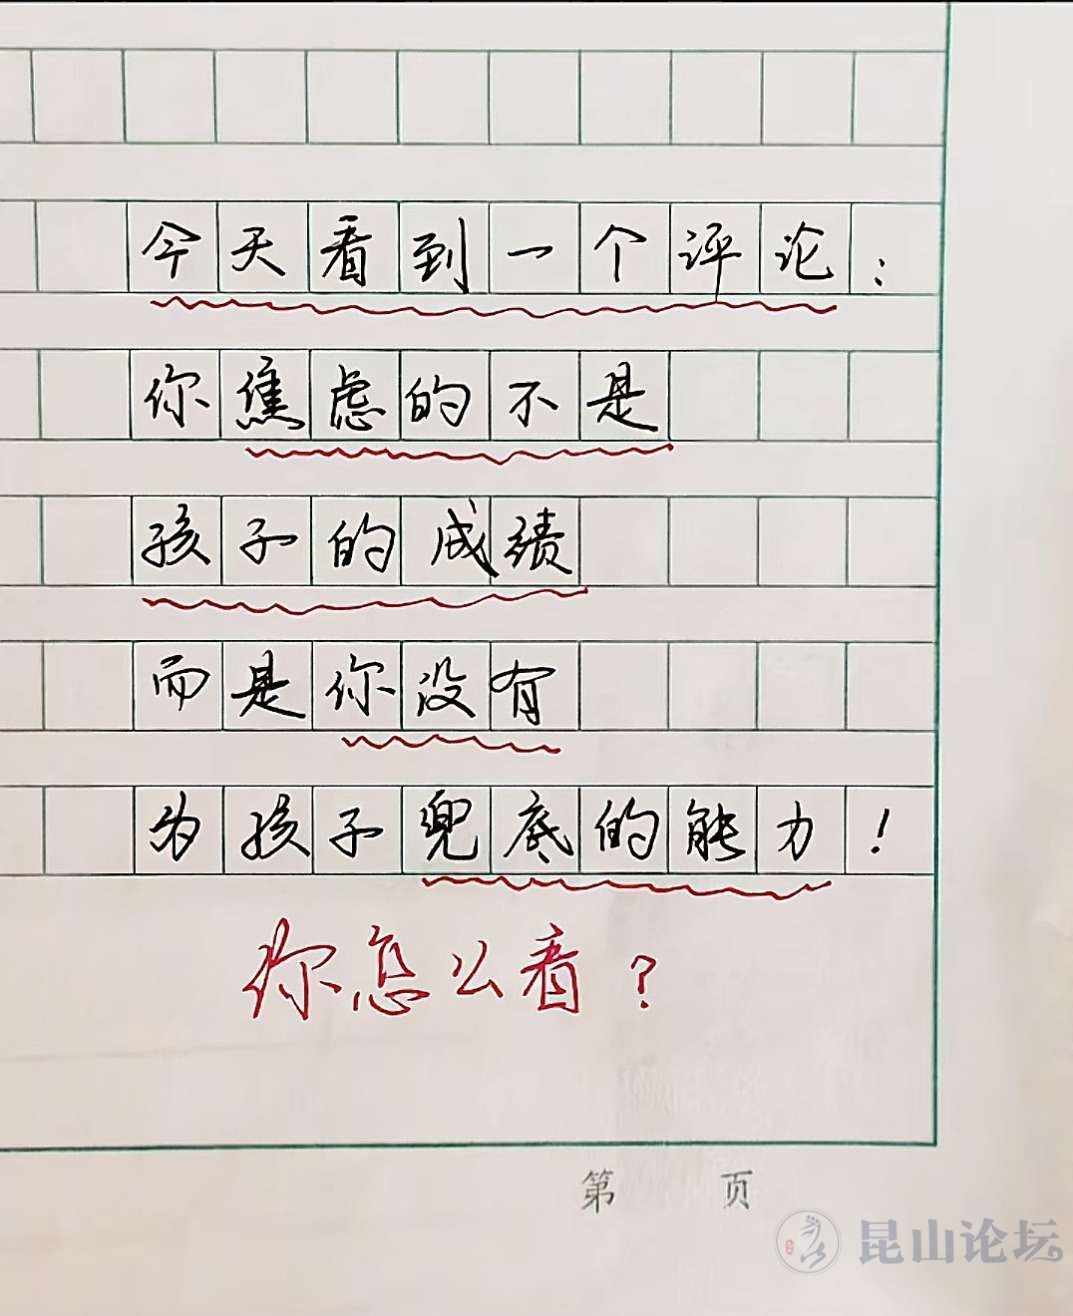 今天看到一个评论：
你焦虑的不是
孩子的成绩
而是你没有
为孩子兜底的能力！
你怎么看？
第 页
昆山论坛